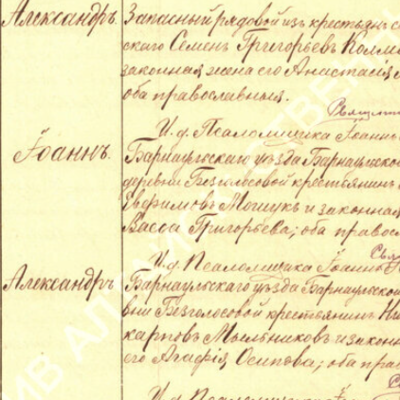 Александръ. Запасный рядовой изъ крестьянъ
скаго Семенъ Григорьевъ
законная жена его Анастасія
оба православныя.
И. д. Псаломщика Іоаннъ
Іоаннъ. Барнаульскаго уѣзда Барнаульской
деревни Безголосовой крестьянинъ
Евфимовъ Мошукъ и законная
Васса Григорьева; оба право
И. д. Псаломщика Іоаннъ
Александръ Барнаульскаго уѣзда Барнаульской
вни Безголосовой крестьянинъ
карповъ Мыльниковъ и закон
его Агафія Осипова; оба пра
И. д. Псаломщика